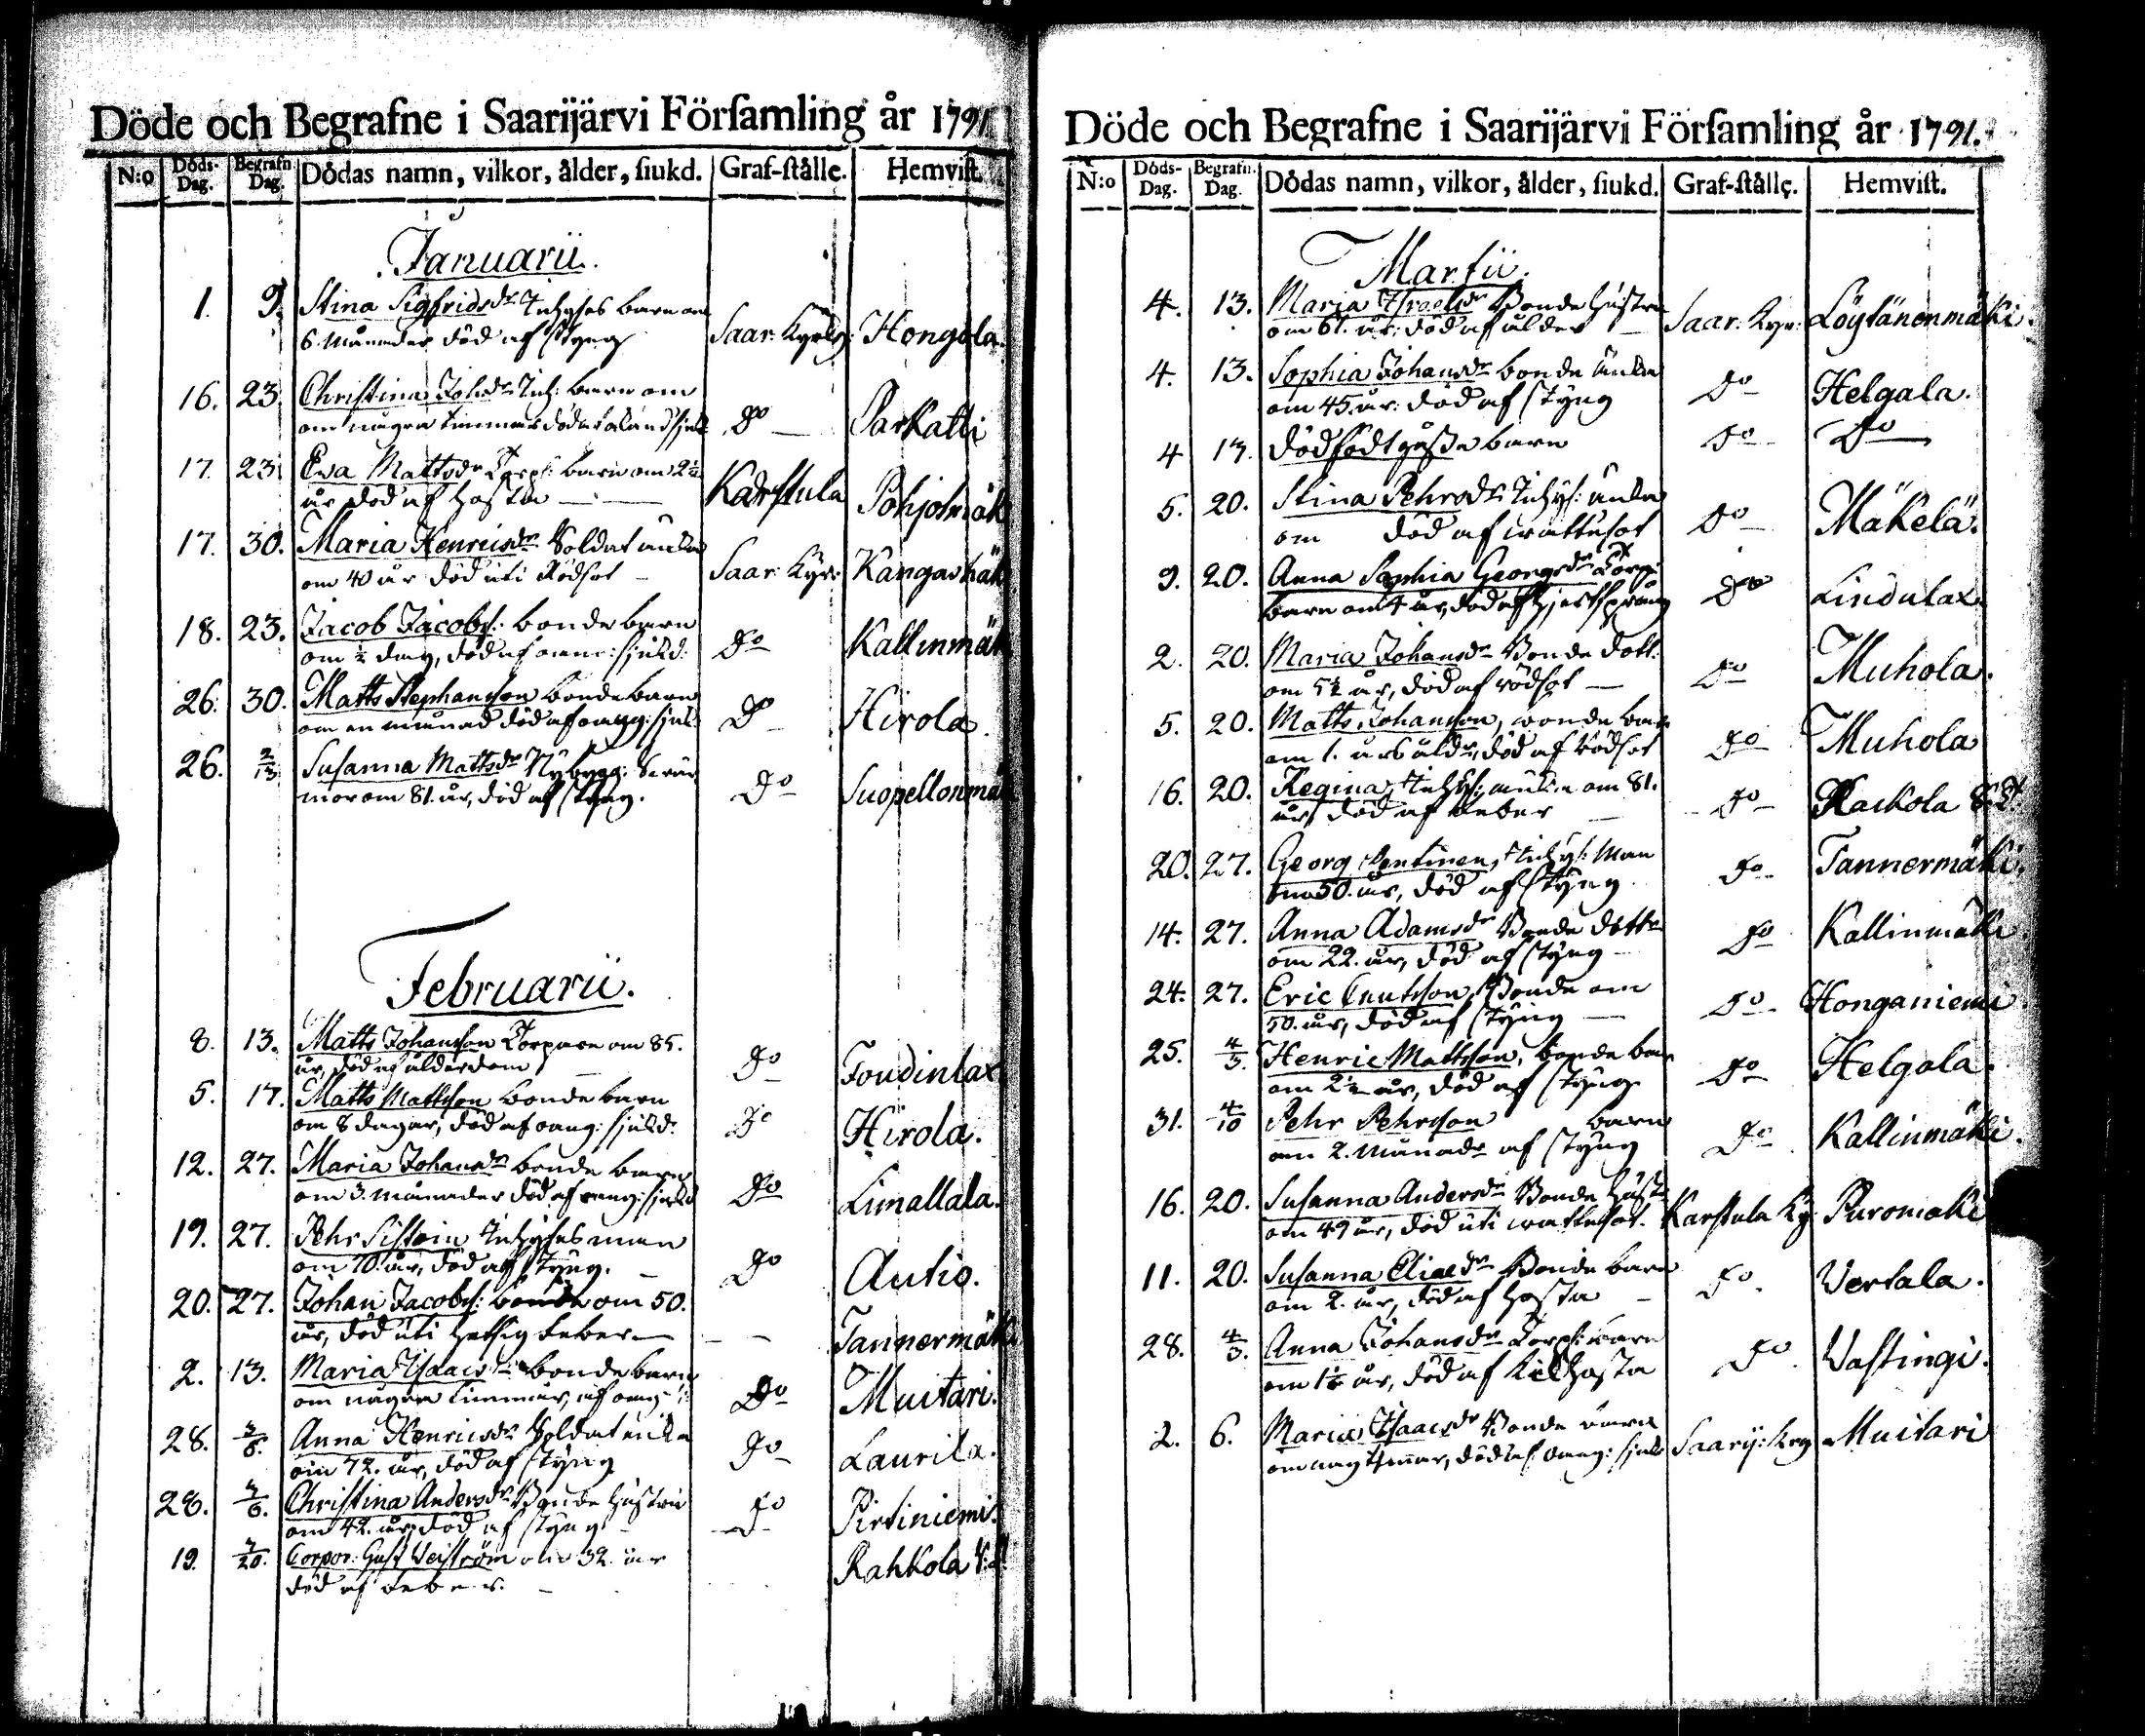 Döde och Begrafne i Saarijärvi Församling år 1791.
N:o Döds-Dag. Begrafn. Dag. Dödas namn, vilkor, ålder, siukd. Graf-ställe. Hemvist.
Januarii.
1. 9. Stina Sigfridsdr Inhyses barn om
6 månader död af styng Saar: Kyrkg: Hongola.
16. 23. Christina Johsdr Inh: barn om
om några timmar död Do Parkatti
17. 23. Eva Mattsdr Torp: barn om 2 1/2
år död af hosta Karstula Pohjolmäk
17. 30. Maria Henricsdr Soldat änka
om 40 år död uti Rödsot Saar: Kyr: Kangashäk
18. 23. Jacob Jacobs: bonde barn
om 1/2 dag, död af siukd: Do Kallinmäk
26. 30. Matts Stephansson bonde barn
om en månad död af oang: siuk: Do Hirola.
26. 2/13 Susanna Mattsdr Nybygg:
mor om 81. år, död af styng. Do Suopellonmä
Februarii.
8. 13. Matts Johansson Torpare om 85.
år, död af ålderdom Do Foudinlax
5. 17. Matts Mattsson bonde barn
om 8 dagar, död af oang: siukd: Do Hirola.
12. 27. Maria Johansdr bonde barn
om 3. månader död af oang: siukd Do Limallala.
19. 27. Pehr Sistoin Inhyses man
om 70. år, död af styng. Do Autio.
20. 27. Johan Jacobs: bonde om 50.
år, död uti hetsig feber Tannermäki
2. 13. Maria Isaacsdr bonde barn
om några timmar, af oang: Do Muitari.
28. 3/6. Anna Henricsdr Soldat enka
om 72. år, död af styng Do Laurila.
28. 3/6. Christina Andersdr Bonde hustru
om 42. år, död af styng Do Pirtiniemi.
19. 3/20. Corpor: Gust Veiström om 32. år
död af feber. Rahkola
Döde och Begrafne i Saarijärvi Församling år 1791.
N:o Döds-Dag. Begrafn. Dag. Dödas namn, vilkor, ålder, siukd. Graf-ställe. Hemvist.
Martii.
4. 13. Maria Israelsdr Bonde hustru
om 61. år: död af ålder Saar: Kyr: Löytänenmäki.
4. 13. Sophia Johansdr bonde änka
om 45. år: död af styng Do Helgala.
4 13. Dödfödt gosse barn Do Do
5. 20. Stina Pehrsdr Inhys: änka
om död af wattusot Do Mäkelä.
9. 20. Anna Sophia Georgsdr Torp:
barn om 4 år, död af hjertsprång Do Lindulax.
2. 20. Maria Johansdr Bonde dott:
om 5 1/2 år, död af rödsot Do Muhola.
5. 20. Matts Johansson, bonde barn
om 1. års ålder, död af rödsot Do Muhola
16. 20. Regina, Inhys: änka om 81.
år, död af feber Do Rackola
20. 27. Georg Pentinen, Inhys: man
om 50. år, död af styng Do Tannermäki.
14. 27. Anna Adamsdr Bonde dottr
om 22. år, död af styng Do Kallinmäki
24. 27. Eric Cnutsson, Bonde om
50. år, död af styng Do Honganiemi
25. 4/3. Henric Mattsson, bonde barn
om 2 1/2 år, död af styng Do Helgala.
31. 4/10 Pehr Pehrsson barn
om 2. månadr af styng Do Kallinmäki.
16. 20. Susanna Andersdr Bonde hust:
om 49 år, död uti wattusot. Karstula Ky: Puromäki
11. 20. Susanna Eliaedr Bonde barn
om 2. år, död af hosta Do. Vertala.
28. 4/3. Anna Johansdr Torp: barn
om 1 1/2 år, död af Kikhosta Do. Vastingi.
2. 6. Maria Isaacsdr Bonde barn
om någ timmar, död af oang: siukd Saarij: Kyr Muitari